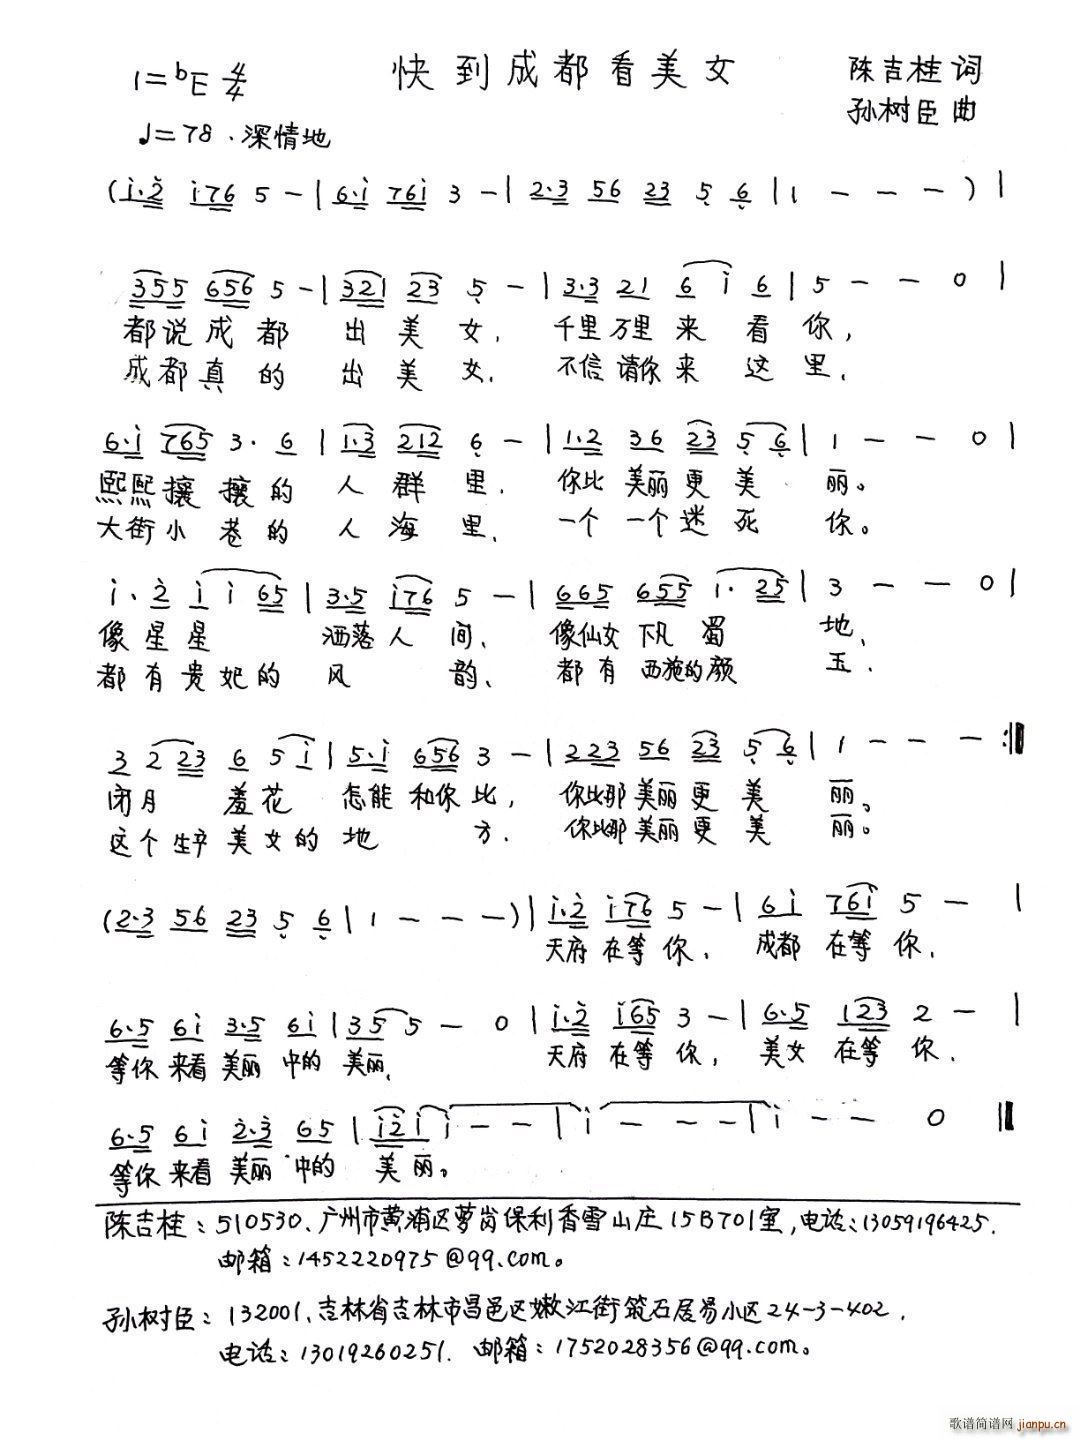 1=bE 4/4 快到成都看美女 陈吉桂 词
♩=78 . 深情地 孙树臣 曲
(i·2 i76 5 - | 6·i 76i 3 - | 2·3 56 23 5 6 | 1 - - - ) |
355 656 5 - | 321 23 5 - | 3·3 21 6 i 6 | 5 - - 0 |
都说成都 出美女, 千里万里来看你,
成都真的 出美女. 不信请你来这里.
6·i 765 3· 6 | 1·3 212 6 - | 1·2 36 23 5 6 | 1 - - 0 |
熙熙攘攘的人群里. 你比美丽更美丽。
大街小巷的人海里. 一个一个迷死你。
i· 2 i i 65 | 3·5 i76 5 - | 665 655 1· 25 | 3 - - 0 |
像星星 洒落人间, 像仙女下凡蜀地,
都有贵妃的风韵、 都有西施的颜玉.
3 2 23 6 5 i | 5·i 656 3 - | 223 56 23 5 6 | 1 - - - :||
闭月羞花怎能和你比, 你比那美丽更美丽。
这个生产美女的地方. 你比那美丽更美丽。
(2·3 56 23 5 6 | 1 - - - ) | i·2 i76 5 - | 6i 76i 5 - |
天府在等你, 成都在等你,
6·5 6i 3·5 6i | 35 5 - 0 | i·2 i65 3 - | 6·5 123 2 - |
等你来看美丽中的美丽, 天府在等你, 美女在等你.
6·5 6i 2·3 65 | i2 i i - - | i - - - | i - - 0 ||
等你来看美丽中的美丽。
陈吉桂:510530、广州市黄浦区萝岗保利香雪山庄15B701室,电话:13059196425.
邮箱:1452220975@qq.com。
孙树臣:132001.吉林省吉林市昌邑区嫩江街筑石居易小区24-3-402.
电话:13019260251. 邮箱:1752028356@qq.com。
歌谱简谱网 jianpu.cn